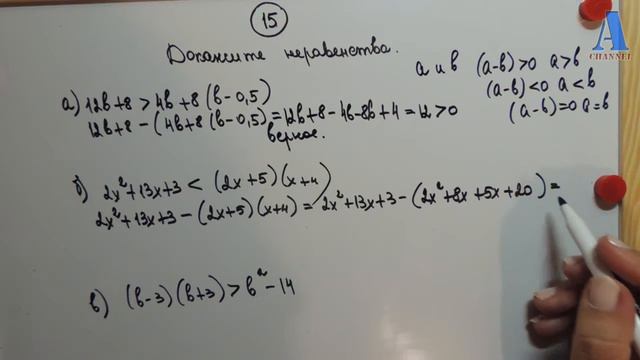 15
Докажите неравенства.
а и в (а-в)>0 а>в
(а-в)<0 а<в
(а-в)=0 а=в
а) 12в+8 > 4в+8(в-0,5)
12в+8-(4в+8(в-0,5)=12в+8-4в-8в+4=12>0
верное.
б) 2x²+13x+3 < (2x+5)(x+4)
2x²+13x+3-(2x+5)(x+4)=2x²+13x+3-(2x²+8x+5x+20)=
в) (в-3)(в+3)>в²-14
A
CHANNEL